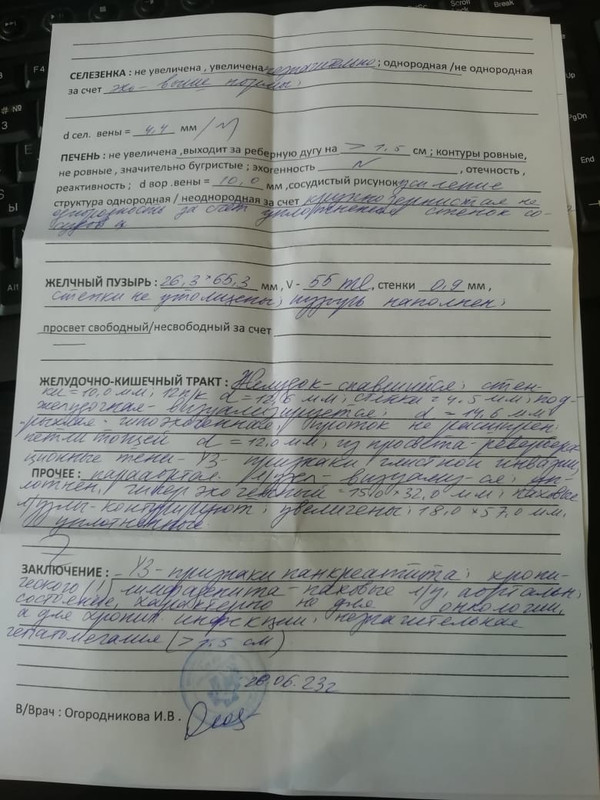 СЕЛЕЗЕНКА : не увеличена , увеличена незначительно ; однородная /не однородная
за счет эхо- выше нормы.
d сел. вены = 4,4 мм / N
ПЕЧЕНЬ : не увеличена ,выходит за реберную дугу на > 1,5 см ; контуры ровные,
не ровные , значительно бугристые ; эхогенность N , отечность ,
реактивность ; d вор .вены = 10,0 мм ,сосудистый рисунок усиление
структура однородная / неоднородная за счет крупнозернистая не
однородность за счет уплотнения стенок со-
судов
ЖЕЛЧНЫЙ ПУЗЫРЬ : 26,3*65,3 мм , V - 55 ml , стенки 0,9 мм ,
стенки не утолщены; пузырь наполнен;
просвет свободный/несвободный за счет
ЖЕЛУДОЧНО-КИШЕЧНЫЙ ТРАКТ : Желудок- спавшийся; стен-
ки = 10,0 мм; 12п/к d = 12,6 мм; стенки = 4.5 мм; под-
желудочная- визуализируется; d = 14,6 мм
рыхлая - гипоэхогенная, проток не расширен
петли тощей d = 12,0 мм; из просвета- ревербера
ционные тени - УЗ- признаки глистной инвазии,
ПРОЧЕЕ : парааортал. л/узел- визуализ-ся; уп-
лотнен, гиперэхогенный - 75,0*32,0 мм; паховые
л/узлы- контурируют; увеличены; 18,0*57,0 мм,
уплотненные
ЗАКЛЮЧЕНИЕ : УЗ- признаки панкреатита; хрони-
ческого лимфаденита- паховые л/у, аортальн;
состояние, характерно не для онкологии,
а для хронич инфекции; незначительная
гепатомегалия (> 1.5 см)
20.06.23г
В/Врач : Огородникова И.В .